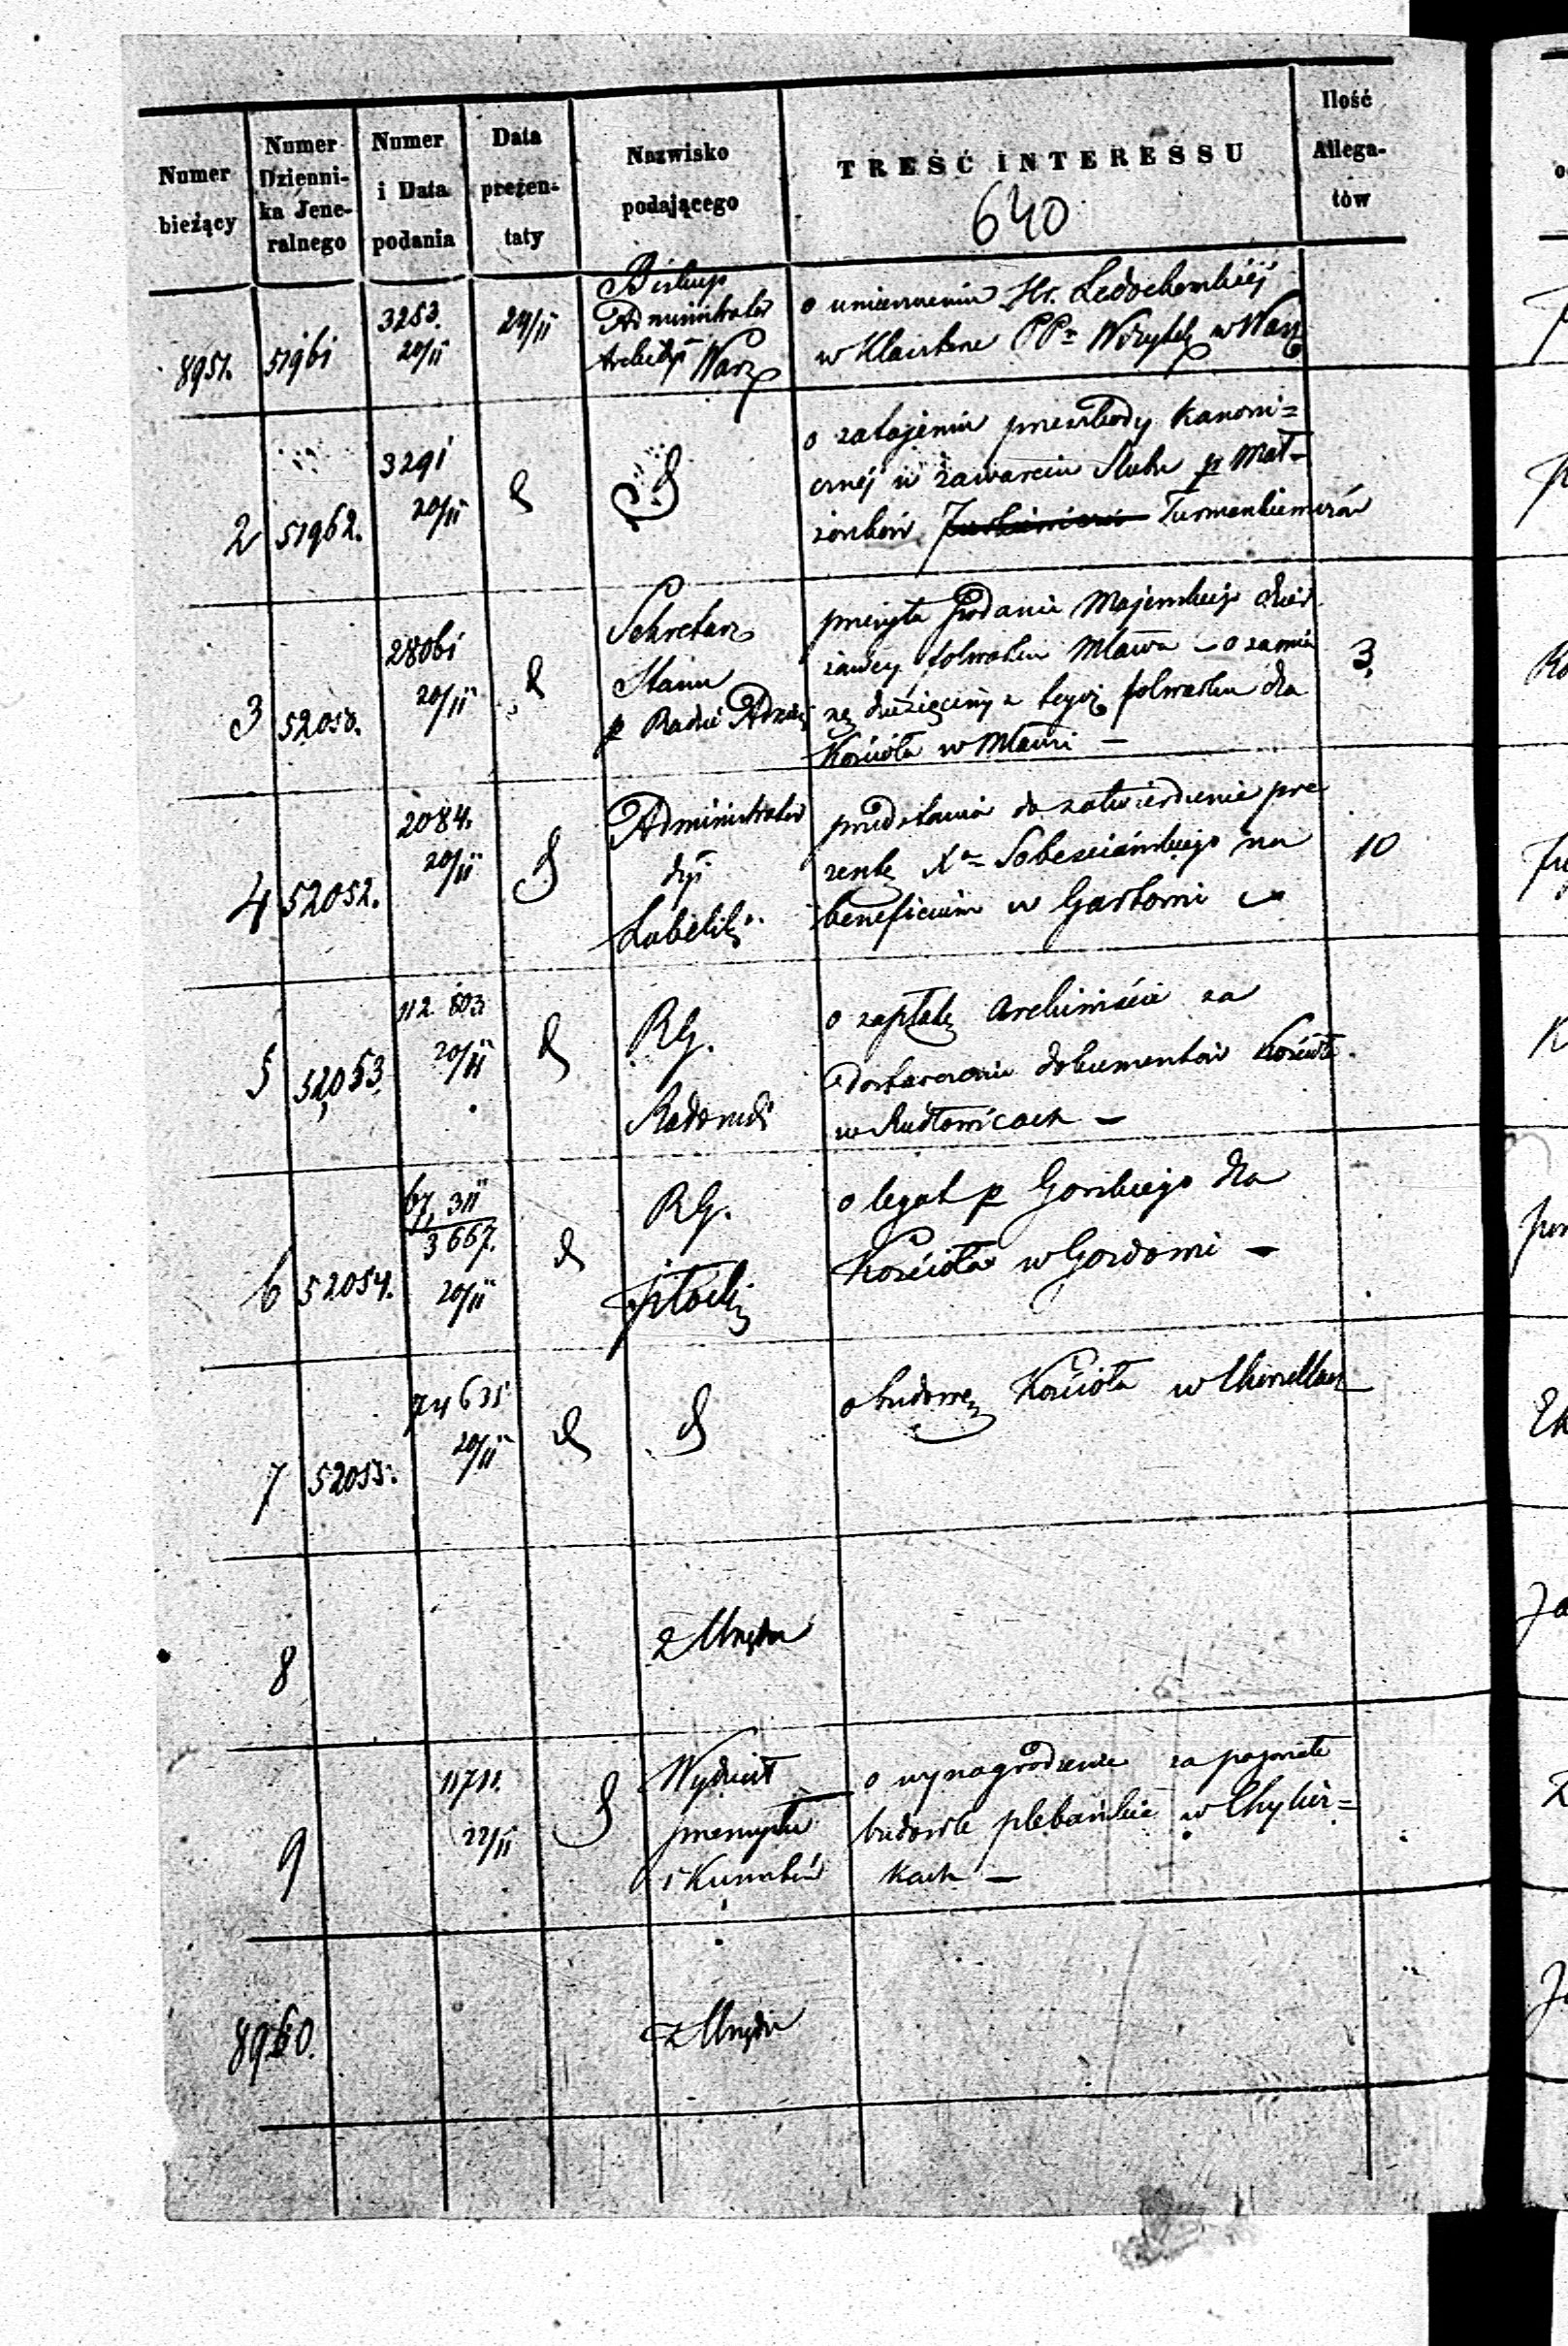 Numer bieżący
Numer Dzienni-
ka Jene-
ralnego
Numer i Data podania
Data prezen-
taty
Nazwisko podającego
TREŚĆ INTERESSU
640
Ilość Allega-
tów
8951. 51961 3253. 20/II 24/II
Biskup
Administrator
Warz
o umieszczeniu Hr. Ledochowskiéj
w Klasztorze PP. Wizytek w Warz
2 51962. 3291 20/II
o zatajeniu przeszkody kanoni=
cznéj w zawarciu ślubu p Mał-
żonków
3 52050. 28061 20/II
Sekretarz
Stanu
p Radzie
przesyła podanie Majewskiego dzier
żawcy folwarku Mława o zamia
nę dziesięciny z tegoż folwarku dla
Kościoła w Mławie —
3
4 52052. 2084. 20/II
Administrator
dyi
Lubelskiej
przedstawia do zatwierdzenia pre
zentę Xa Sobesciańskiego na
beneficium w
10
5 52053 112 803 20/II
RG.
Radomski
o zapłatę Archiwiście za
dostarczenie dokumentów Kościoła
w —
6 52054. 67,311
3667. 20/II
RG.
Płocki
o legat p Gorskiego dla
Kościoła w —
7 52055. 74635 20/II
o budowę Kościoła w
8
z Urzędu
9 11711. 22/II
Wydział
przemysłu
i Kunsztów
o wynagrodzenie za pogorzałe
budowle plebańskie w Chylicz=
kach —
8960.
z Urzędu